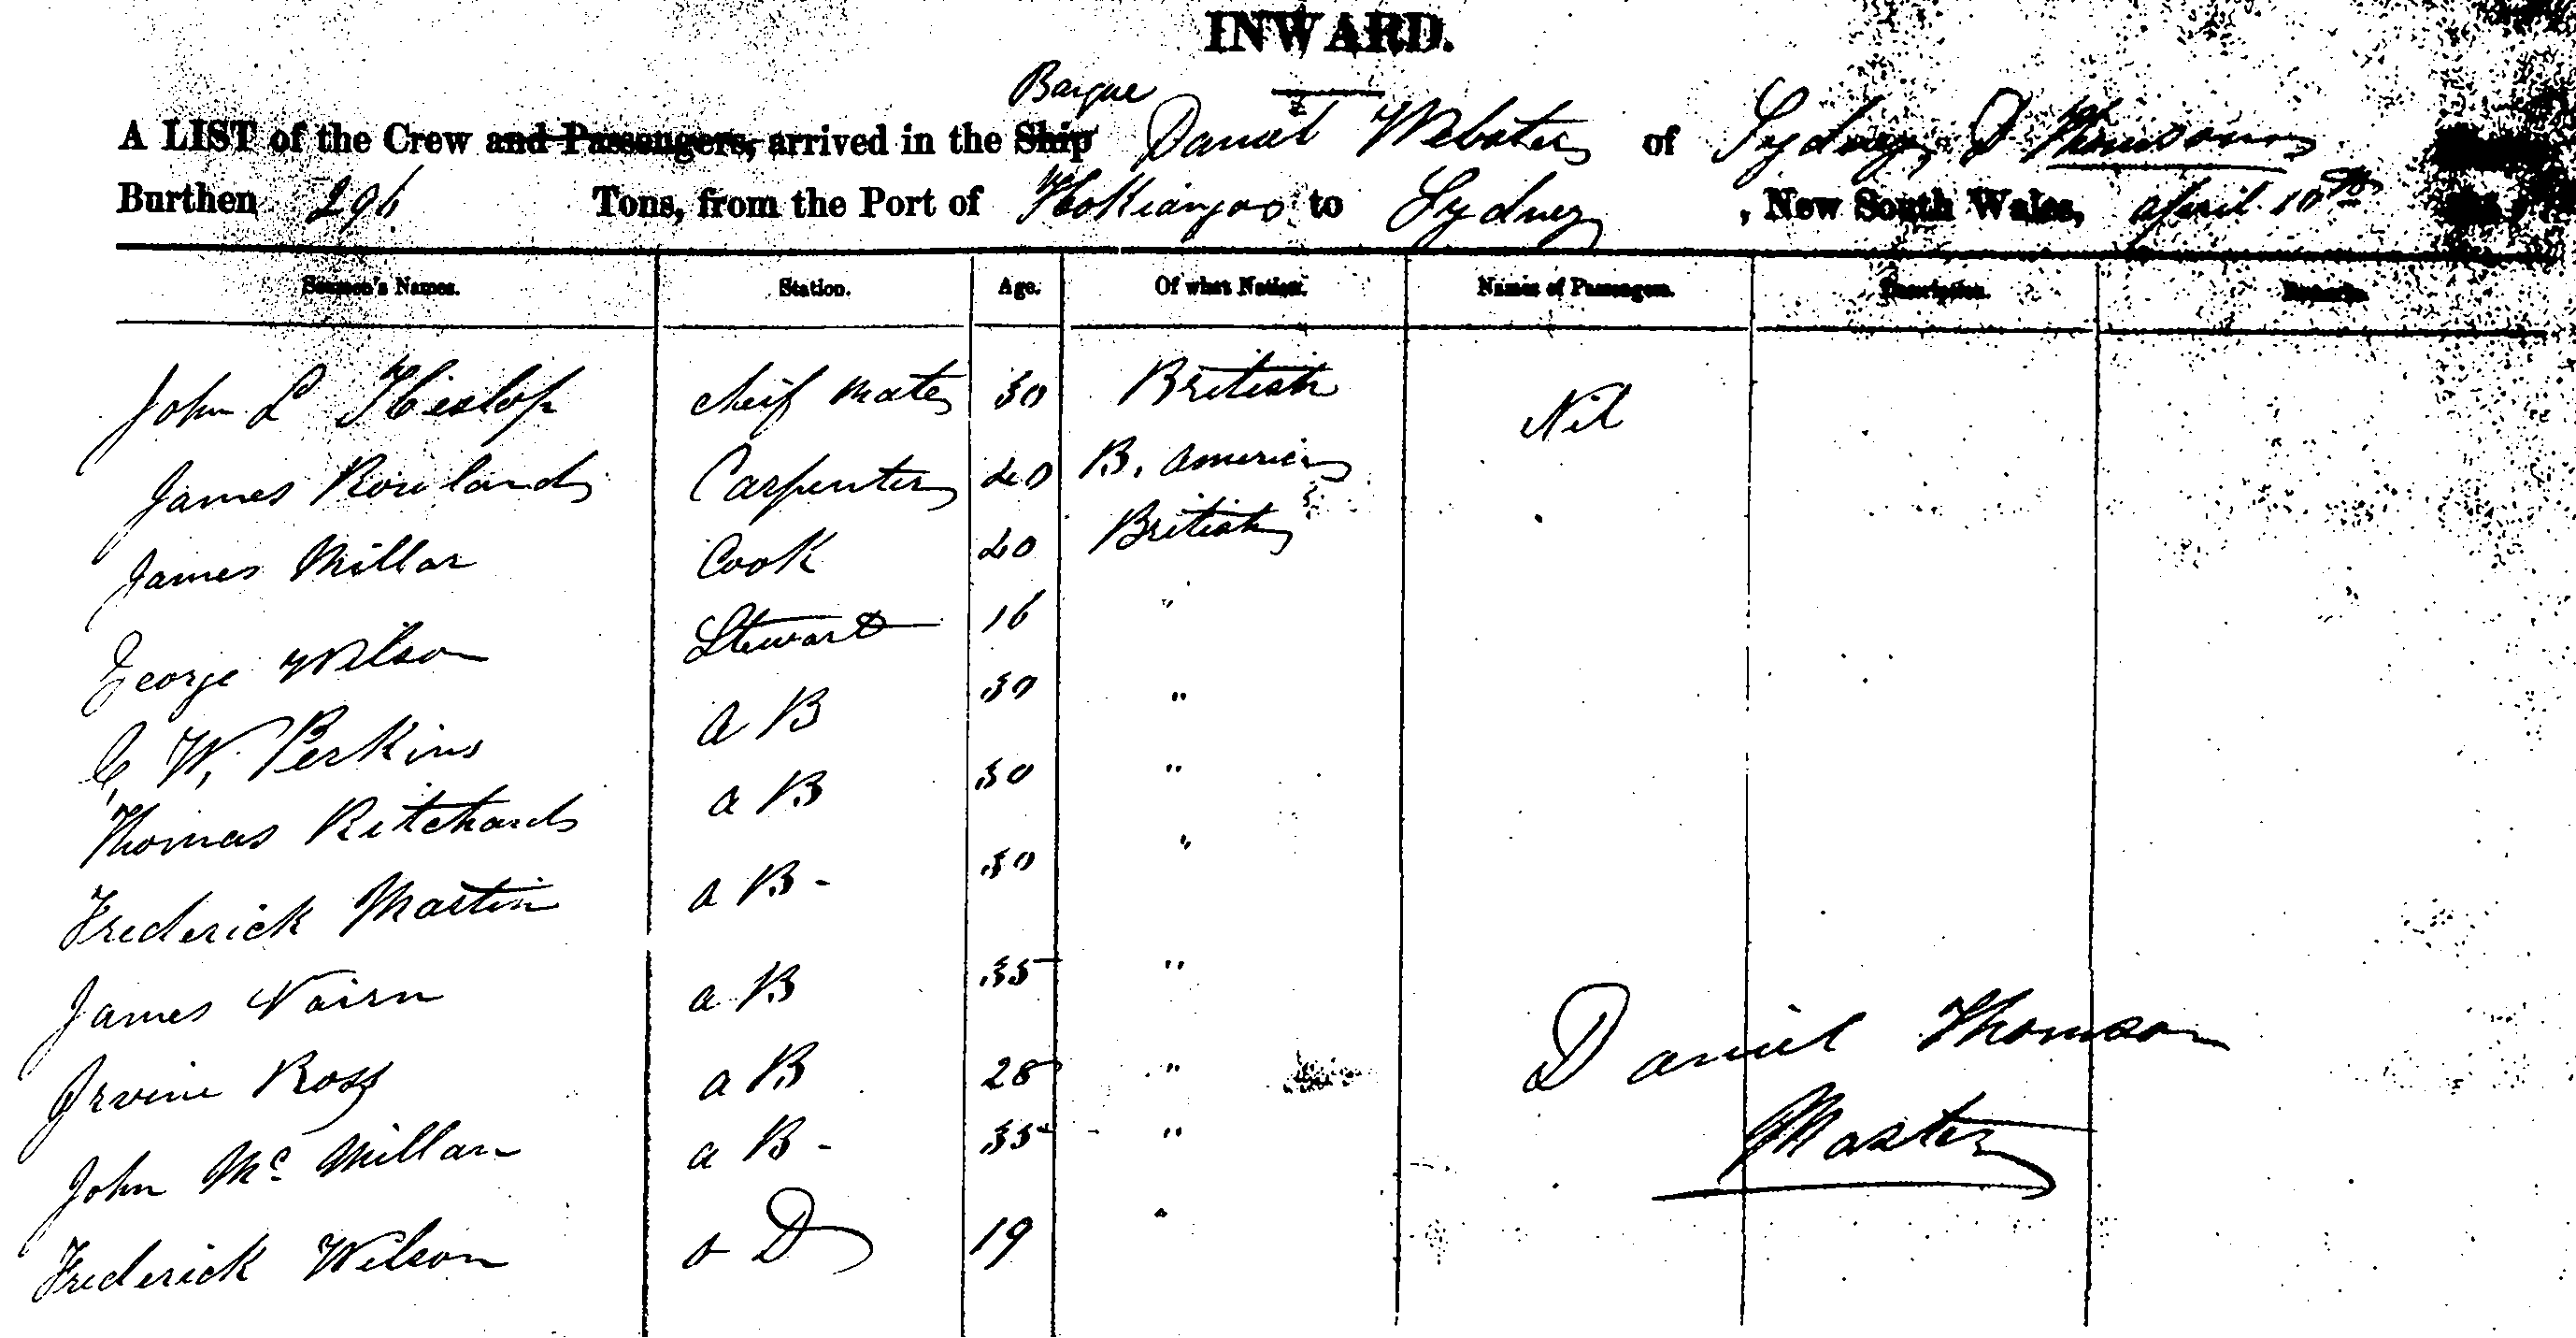 INWARD.
Barque
A LIST of the Crew and Passengers, arrived in the Ship Daniel Webster of Sydney, D Thomson
Burthen 296 Tons, from the Port of Hokianga to Sydney, New South Wales, april 10th
Seamen's Names. Station. Age. Of what Nation. Names of Passengers. Description. Remarks.
John L Hislop cheif mate 30 British Nil
James Rowlands Carpenter 20 B. America
James Millar Cook 20 British
George Wilson Steward 16 "
C, W, Perkins a B 30 "
Thomas Ritchards a B 30 "
Frederick Martin a B - 30 "
James Nairn a B 35 "
Irvine Ross a B 28 "
John Mc Millan a B - 35 "
Frederick Wilson o D 19 "
Daniel Thomson
Master